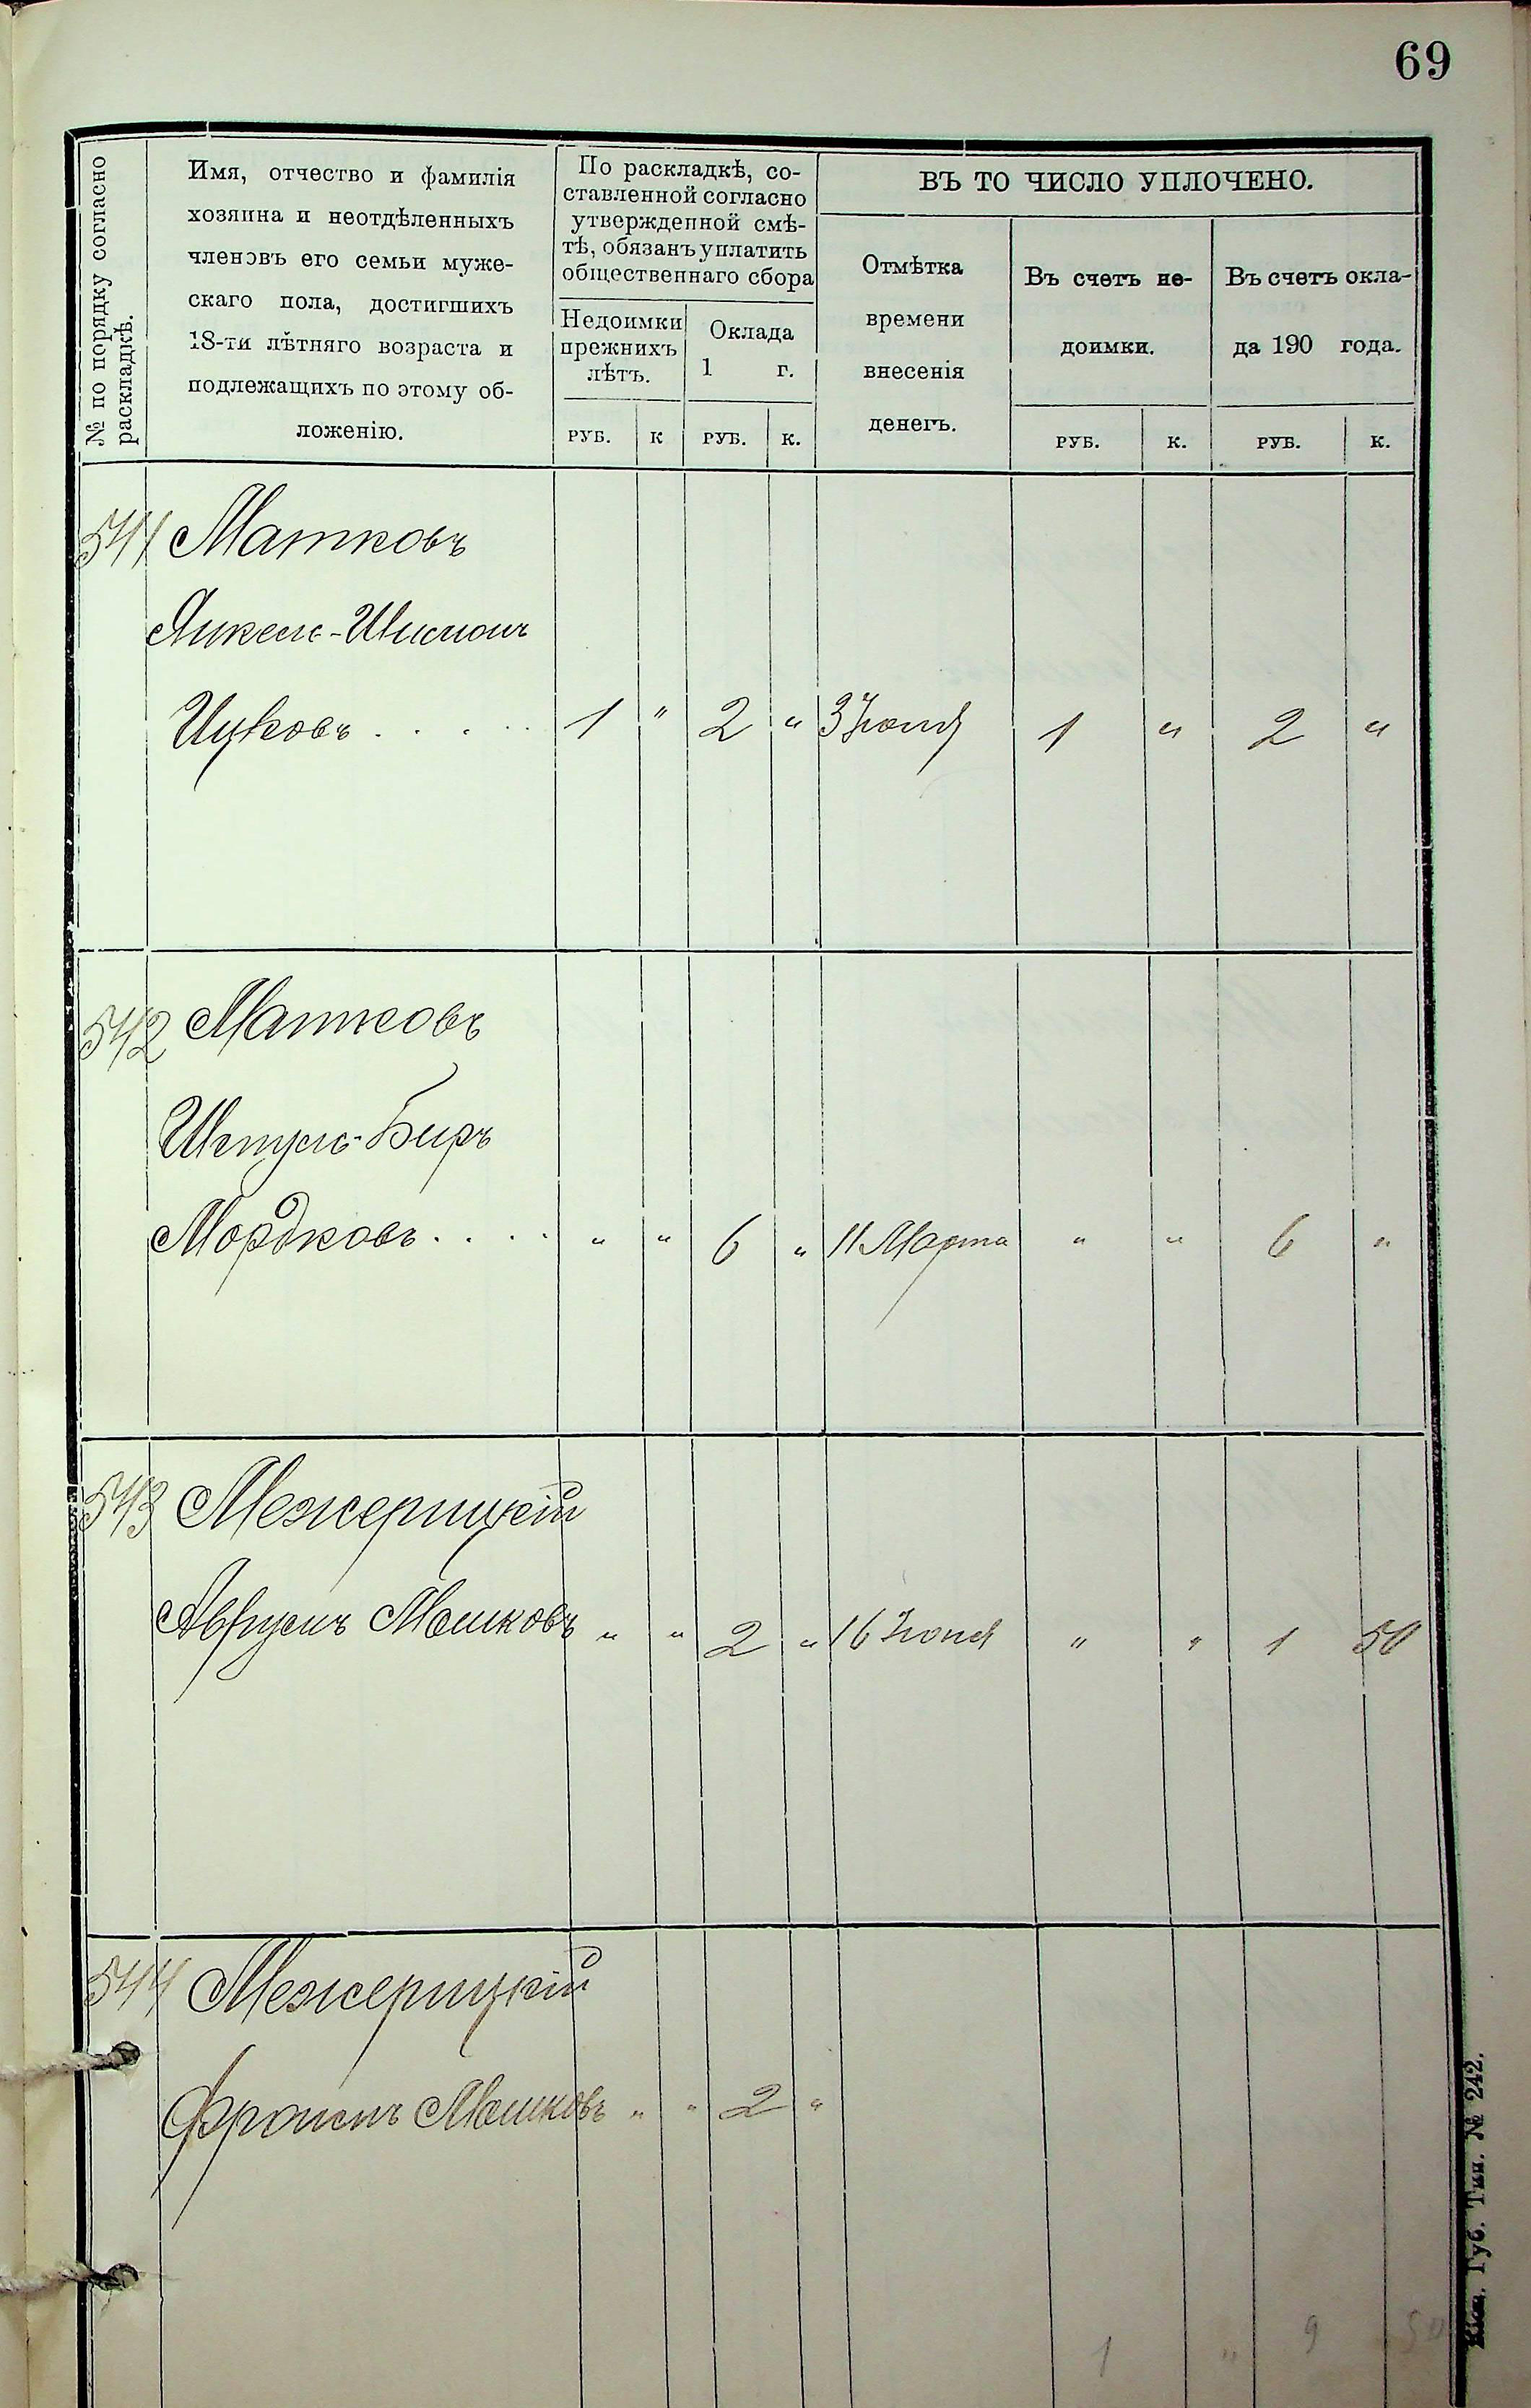 69
№ по порядку согласно
раскладкѣ.
Имя, отчество и фамилія
хозяина и неотдѣленныхъ
членовъ его семьи муже-
скаго пола, достигшихъ
18-ти лѣтняго возраста и
подлежащихъ по этому об-
ложенію.
По раскладкѣ, со-
ставленной согласно
утвержденной смѣ-
тѣ, обязанъ уплатить
общественнаго сбора
Недоимки
прежнихъ
лѣтъ.
Оклада
1 г.
ВЪ ТО ЧИСЛО УПЛОЧЕНО.
Отмѣтка
времени
внесенія
денегъ.
Въ счетъ не-
доимки.
Въ счетъ окла-
да 190 года.
РУБ. К РУБ. К. РУБ. К. РУБ. К.
541 Матковъ
Янкель-Шлиома
Ицковъ . . . . . 1 " 2 " 3 Іюня 1 " 2 "
542 Матковъ
Шмуль-Беръ
Мордковъ . . . . " " 6 " 11 Марта " " 6 "
543 Межерицкій
Аврумъ Мошковъ " " 2 " 16 Іюня " " 1 50
544 Межерицкій
Фроимъ Мошковъ " " 2 "
1 " 9 50
Киш. Губ. Тип. № 242.